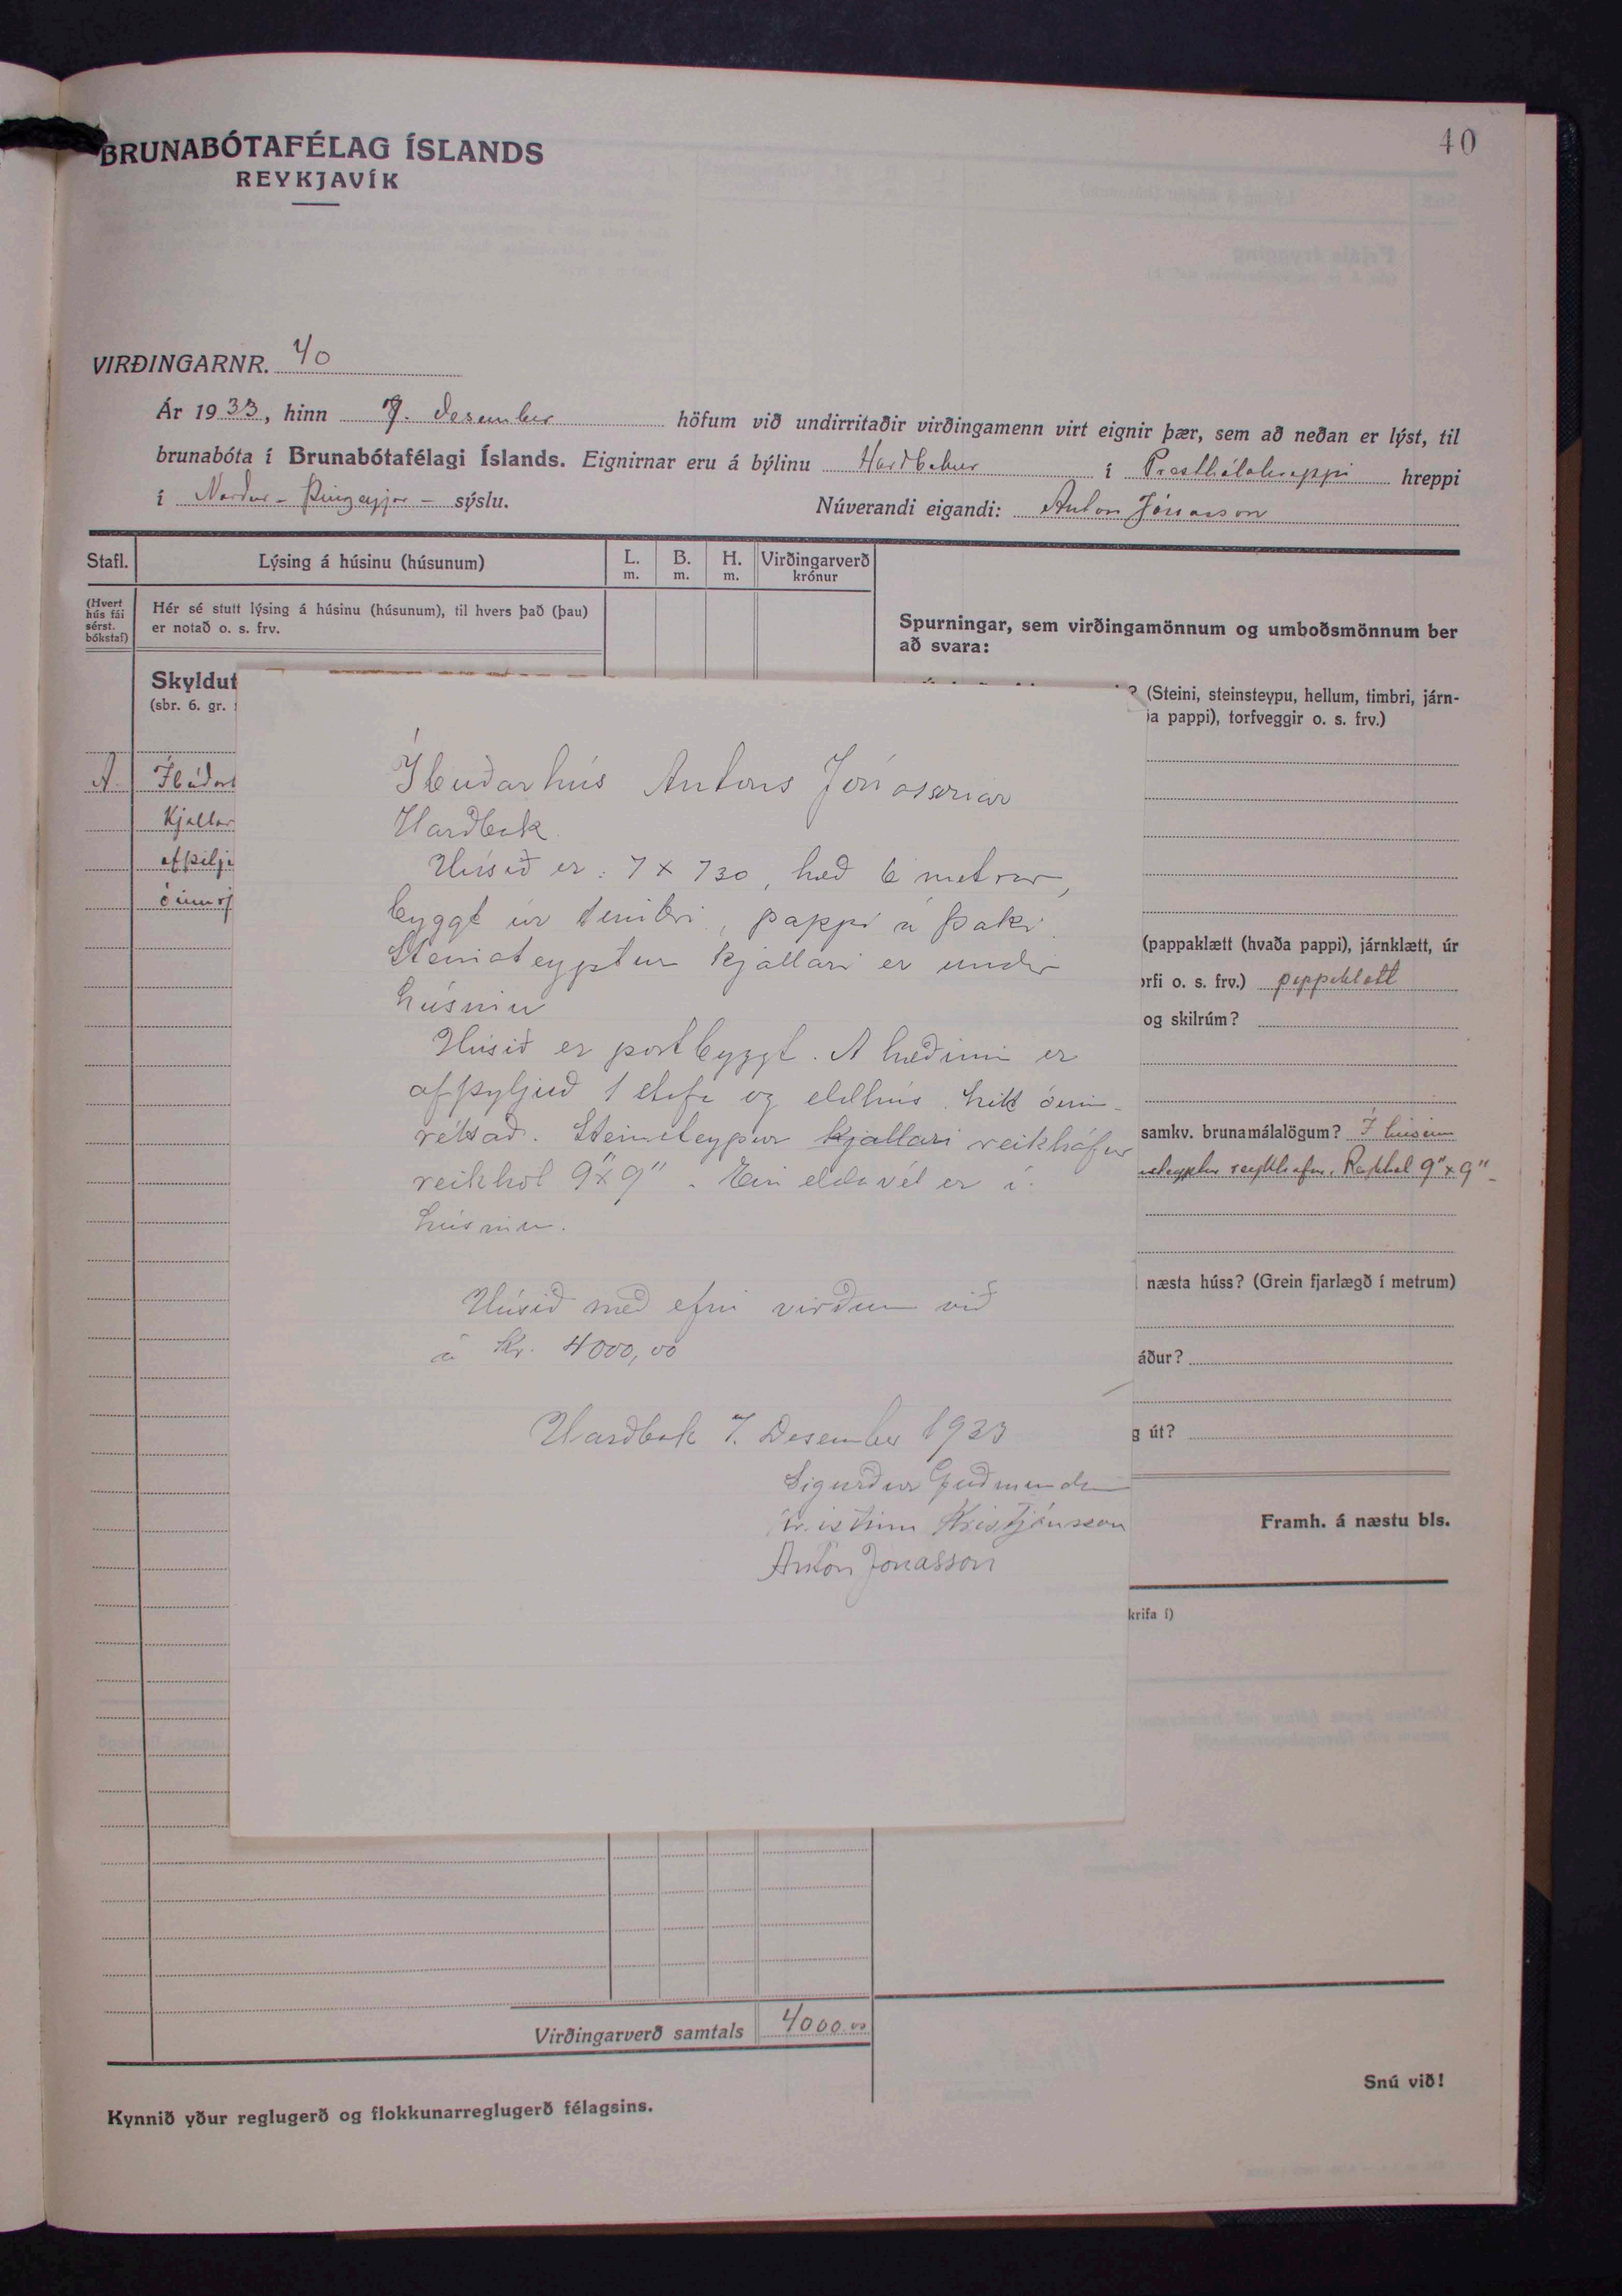 40
BRUNABÓTAFÉLAG ÍSLANDS
REYKJAVÍK
VIRÐINGARNR. 40
Ár 1933, hinn 7. desember höfum við undirritaðir virðingamenn virt eignir þær, sem að neðan er lýst, til
brunabóta í Brunabótafélagi Íslands. Eignirnar eru á býlinu Harðbakur í Presthólahreppi hreppi
í Norður-Þingeyjar- sýslu. Núverandi eigandi: Anton Jónasson
Stafl. Lýsing á húsinu (húsunum) L. m. B. m. H. m. Virðingarverð krónur
(Hvert hús fái sérst. bókstaf)
Hér sé stutt lýsing á húsinu (húsunum), til hvers það (þau)
er notað o. s. frv.
Spurningar, sem virðingamönnum og umboðsmönnum ber
að svara:
Skyldut
(sbr. 6. gr.
? (Steini, steinsteypu, hellum, timbri, járn-
ja pappi), torfveggir o. s. frv.)
A. Íbúðarh
Kjallar
afþilja
óinnr
Íbúðarhús Antons Jónassonar
Harðbak
Húsið er: 7 x 730, hæð 6 metrar,
byggt úr timbri, pappi á þaki.
Steinsteyptur kjallari er undir
húsinu
Húsið er portbyggt. Á hæðinni er
afþyljuð 1 stofa og eldhús hitt óinn-
réttað. Steinsteypur kjallari reikháfur
reikhol 9" x 9". Ein eldavél er í
húsinu.
Húsið með efni virðum við
á kr. 4000,00
Harðbak 7. Desember 1933
Sigurður Guðmunds
Kristinn Kristjánsson
Anton Jónasson
(pappaklætt (hvaða pappi), járnklætt, úr
orfi o. s. frv.) pappaklætt
og skilrúm?
samkv. brunamálalögum? Í húsinu
nsteyptur reykháfur. Reykhol 9" x 9"
næsta húss? (Grein fjarlægð í metrum)
áður?
g út?
Framh. á næstu bls.
krifa í)
Virðingarverð samtals 4000.00
Snú við!
Kynnið yður reglugerð og flokkunarreglugerð félagsins.